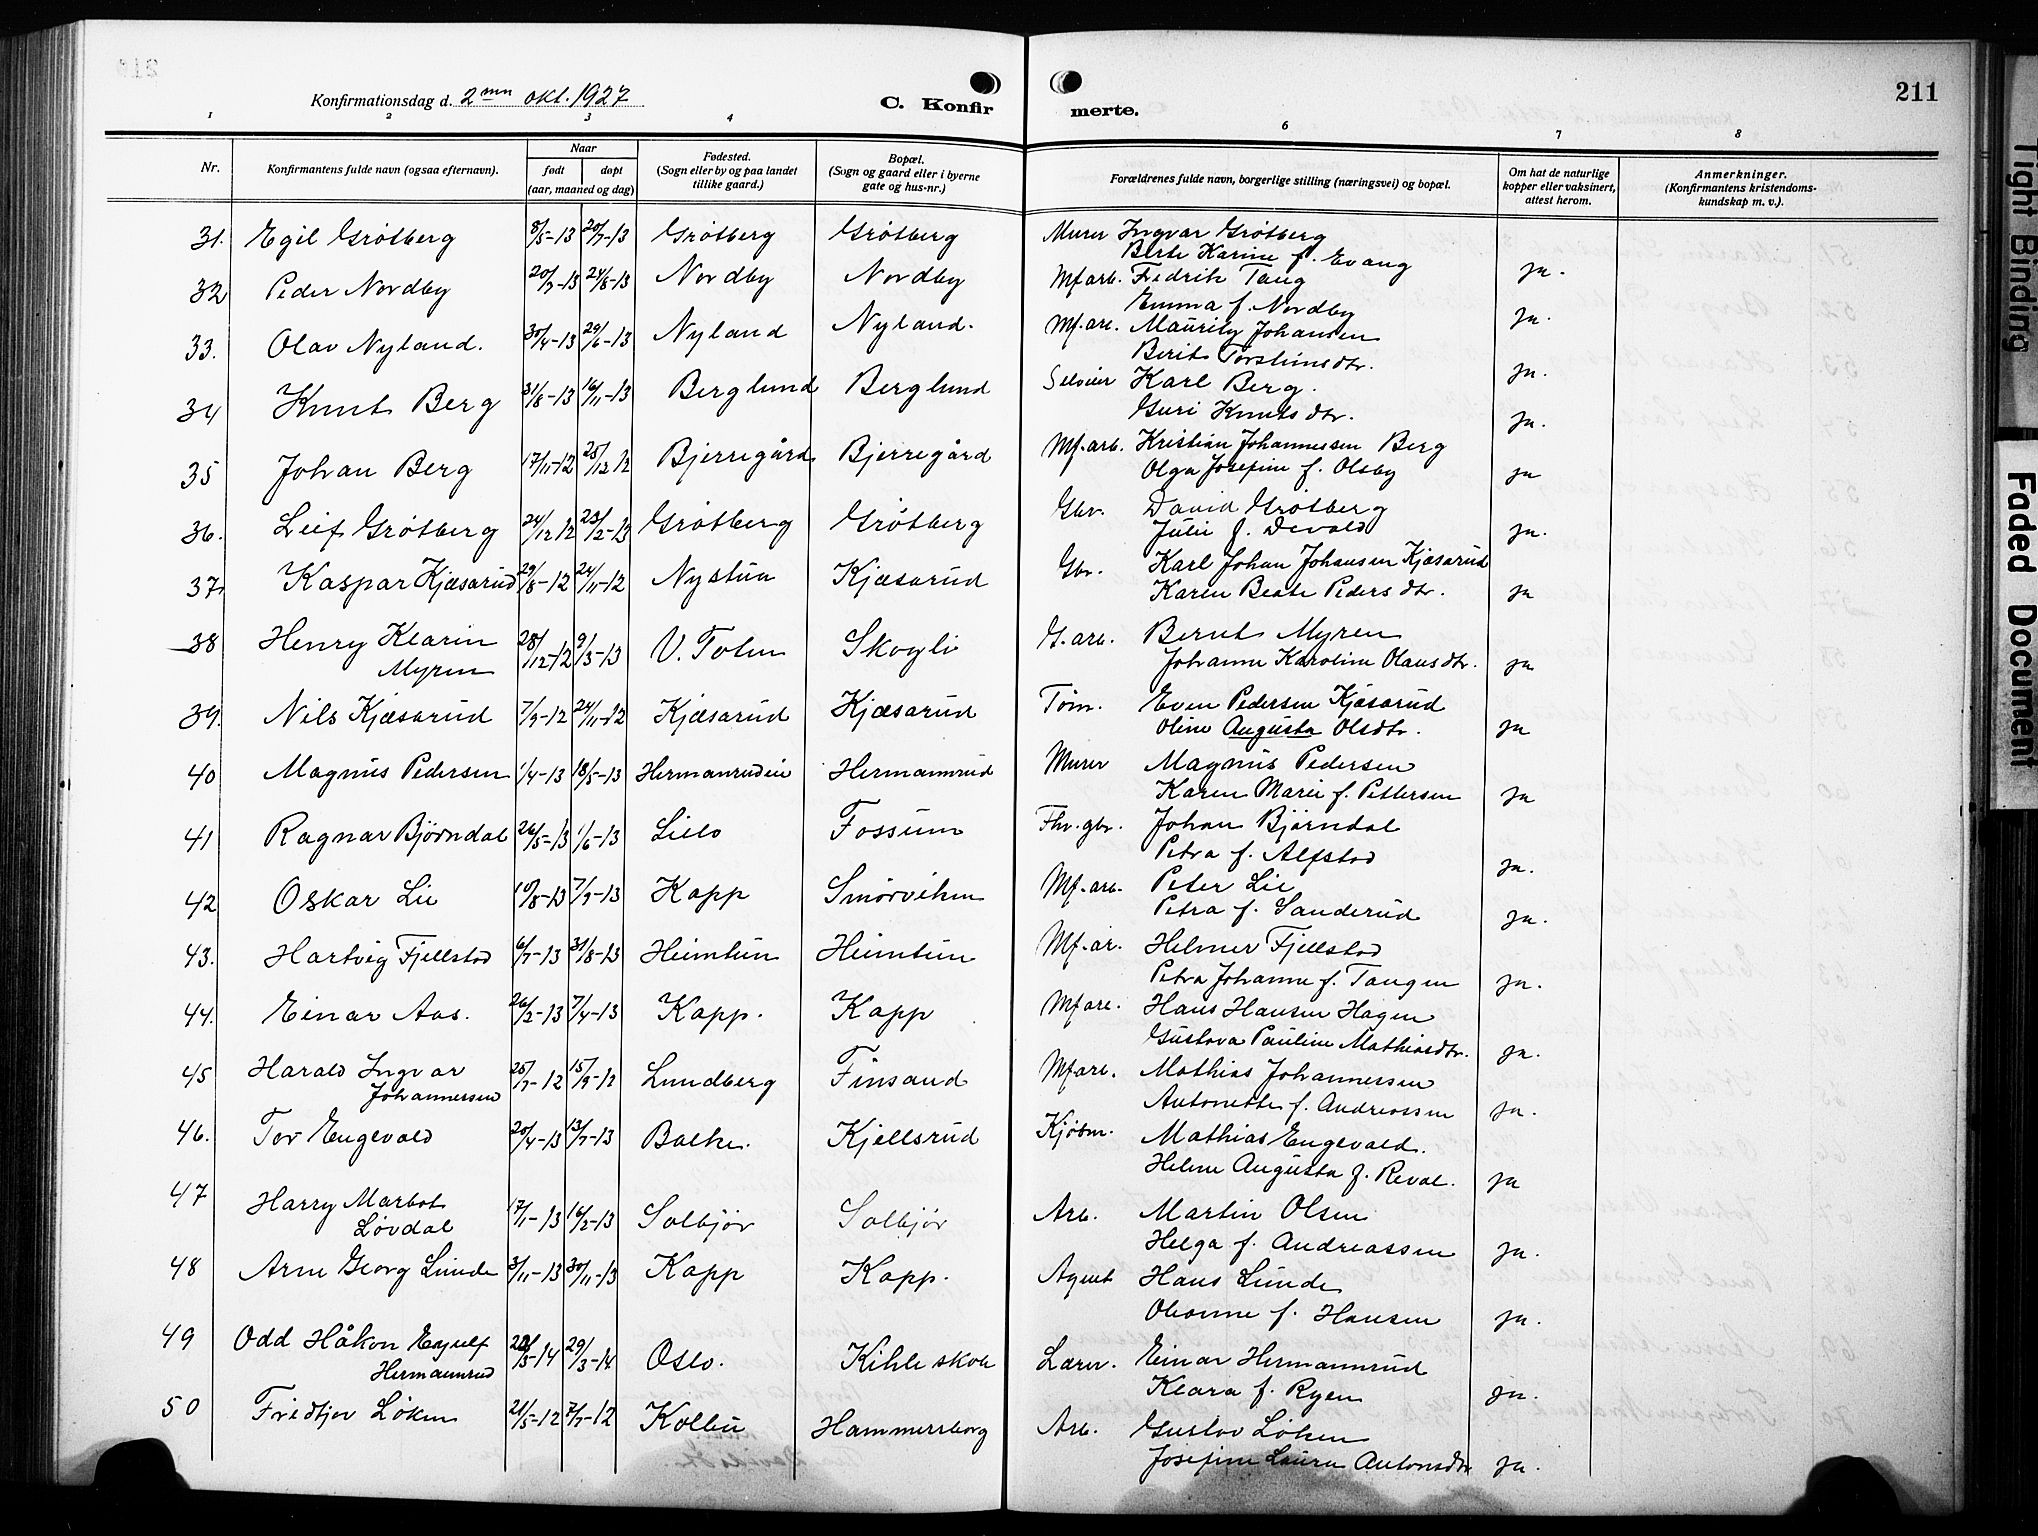 Konfirmationsdag d. 2mn okt. 1927
C. Konfir merte.
211
1 2 3 4 6 7 8
Nr. Konfirmantens fulde navn (ogsaa efternavn). Naar født døpt (aar, maaned og dag) Fødested. (Sogn eller by og paa landet tillike gaard.) Bopæl. (Sogn og gaard eller i byerne gate og hus-nr.) Forældrenes fulde navn, borgerlige stilling (næringsvei) og bopæl. Om hat de naturlige kopper eller vaksinert, attest herom. Anmerkninger. (Konfirmantens kristendoms-kundskap m. v.).
31. Egil Grøtberg 8/5-13 20/7-13 Grøtberg Grøtberg Murer Ingvar Grøtberg
Berte Karine f. Evang ja.
32 Peder Nordby 20/7-13 24/8-13 Nordby Nordby Mf arb. Fredrik Tang
Emma f. Nordby ja.
33. Olav Nyland. 30/4-13 29/6-13 Nyland Nyland. Mf. arb. Mauritz Johansen
Berit Torsteinsdtr. ja.
34 Knut Berg 31/8-13 16/11-13 Berglund Berglund Karl Berg.
Guri Knutsdtr. ja.
35 Johan Berg 17/11-12 25/12 12 Bjerregård Bjerregård Mf. arb. Kristian Johannessen Berg
Olga Josefine f. Olsby ja
36. Leif Grøtberg 24/12 12 23/2-13 Grøtberg Grøtberg Gbr. David Grøtberg
Julie f. Devold ja.
37. Kaspar Kjæsarud 29/8-12 24/11-12 Nystua Kjæsarud Gbr. Karl Johan Johansen Kjæsarud
Karen Beate Pedersdtr. ja
38 Henry Klarin Myren 28/12-12 9/3-13 V. Toten Skogli G. arb. Bernt Myren
Johanne Karoline Olausdtr. ja
39. Nils Kjæsarud 7/9-12 24/11-12 Kjæsarud Kjæsarud Tøm. Even Pedersen Kjæsarud
Oline Augusta Olsdtr. ja
40 Magnus Pedersen 1/4-13 18/5-13 Hermanrudeie Hermannrud Murer Magnus Pedersen
Karen Marie f. Pettersen ja
41 Ragnar Bjørndal 26/5-13 1/6-13 Lillo Fossum Fhv. gbr. Johan Bjørndal
Petra f. Alfstad ja.
42 Oskar Lie 10/8-13 7/9-13 Kapp Smørviken Mf. arb. Peter Lie
Petra f. Sanderud ja.
43. Hartvig Fjellstad 6/7-13 31/8-13 Heimtun Heimtun Mf. ar. Helmer Fjellstad
Petra Johanne f. Tangen ja.
44. Einar Aas. 26/2-13 7/4-13 Kapp. Kapp Mf arb. Hans Hansen Hagen
Gustava Pauline Mathiasdtr. ja.
45 Harald Ingvar Johannersen 25/7-12 15/9-12 Lundberg Finsand Mf arb. Mathias Johannersen
Antonette f. Andreassen ja.
46. Tor Engevald 20/4-13 13/7-13 Balke. Kjellsrud Kjøbm. Mathias Engevald.
Helene Augusta f. Reval. ja
47 Harry Marbot Løvdal 17/1-13 16/2-13 Solbjør Solbjør Arb. Martin Olsen
Helga f. Andreassen ja.
48 Arne Georg Lunde 3/11-13 30/11-13 Kapp Kapp. Agent Hans Lunde
f. Hansen ja.
49 Odd Håkon Eyulf Hermannrud /3-14 29/3-14 Oslo. Kihle skole Lærer. Einar Hermannrud
Klara f. Ryen ja.
50 Fridtjov Løken 21/5-12 7/7-12 Kolbu Hammersborg Arb. Gustav Løken
Josefine Laura Antonsdtr ja.
Tight Binding
Faded Document